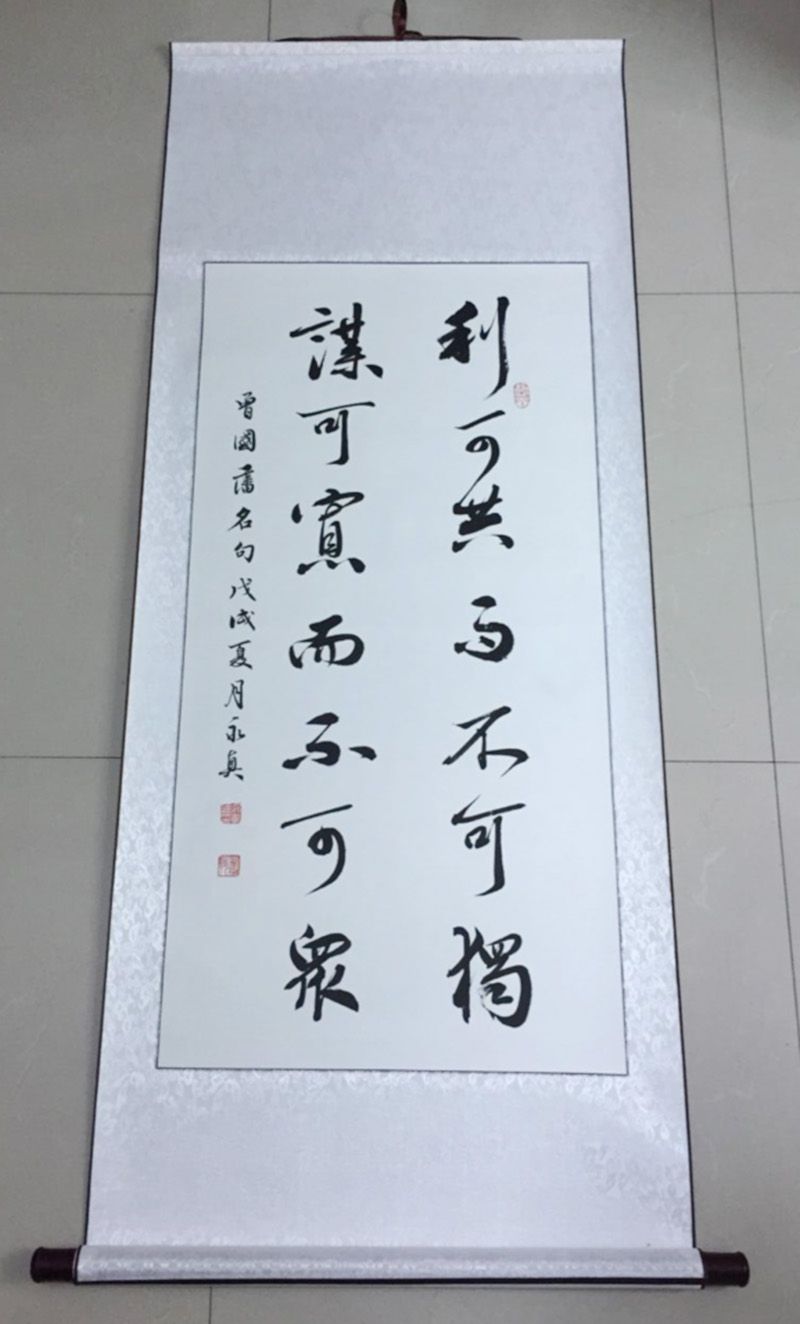 利可共而不可獨
謀可寡而不可眾
曾國藩名句戊戌夏月永真